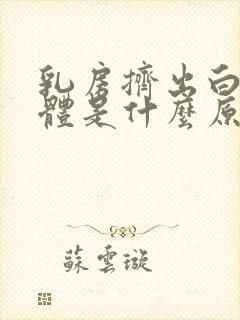 乳房擠出白
體是什麼原
蘇雲璇